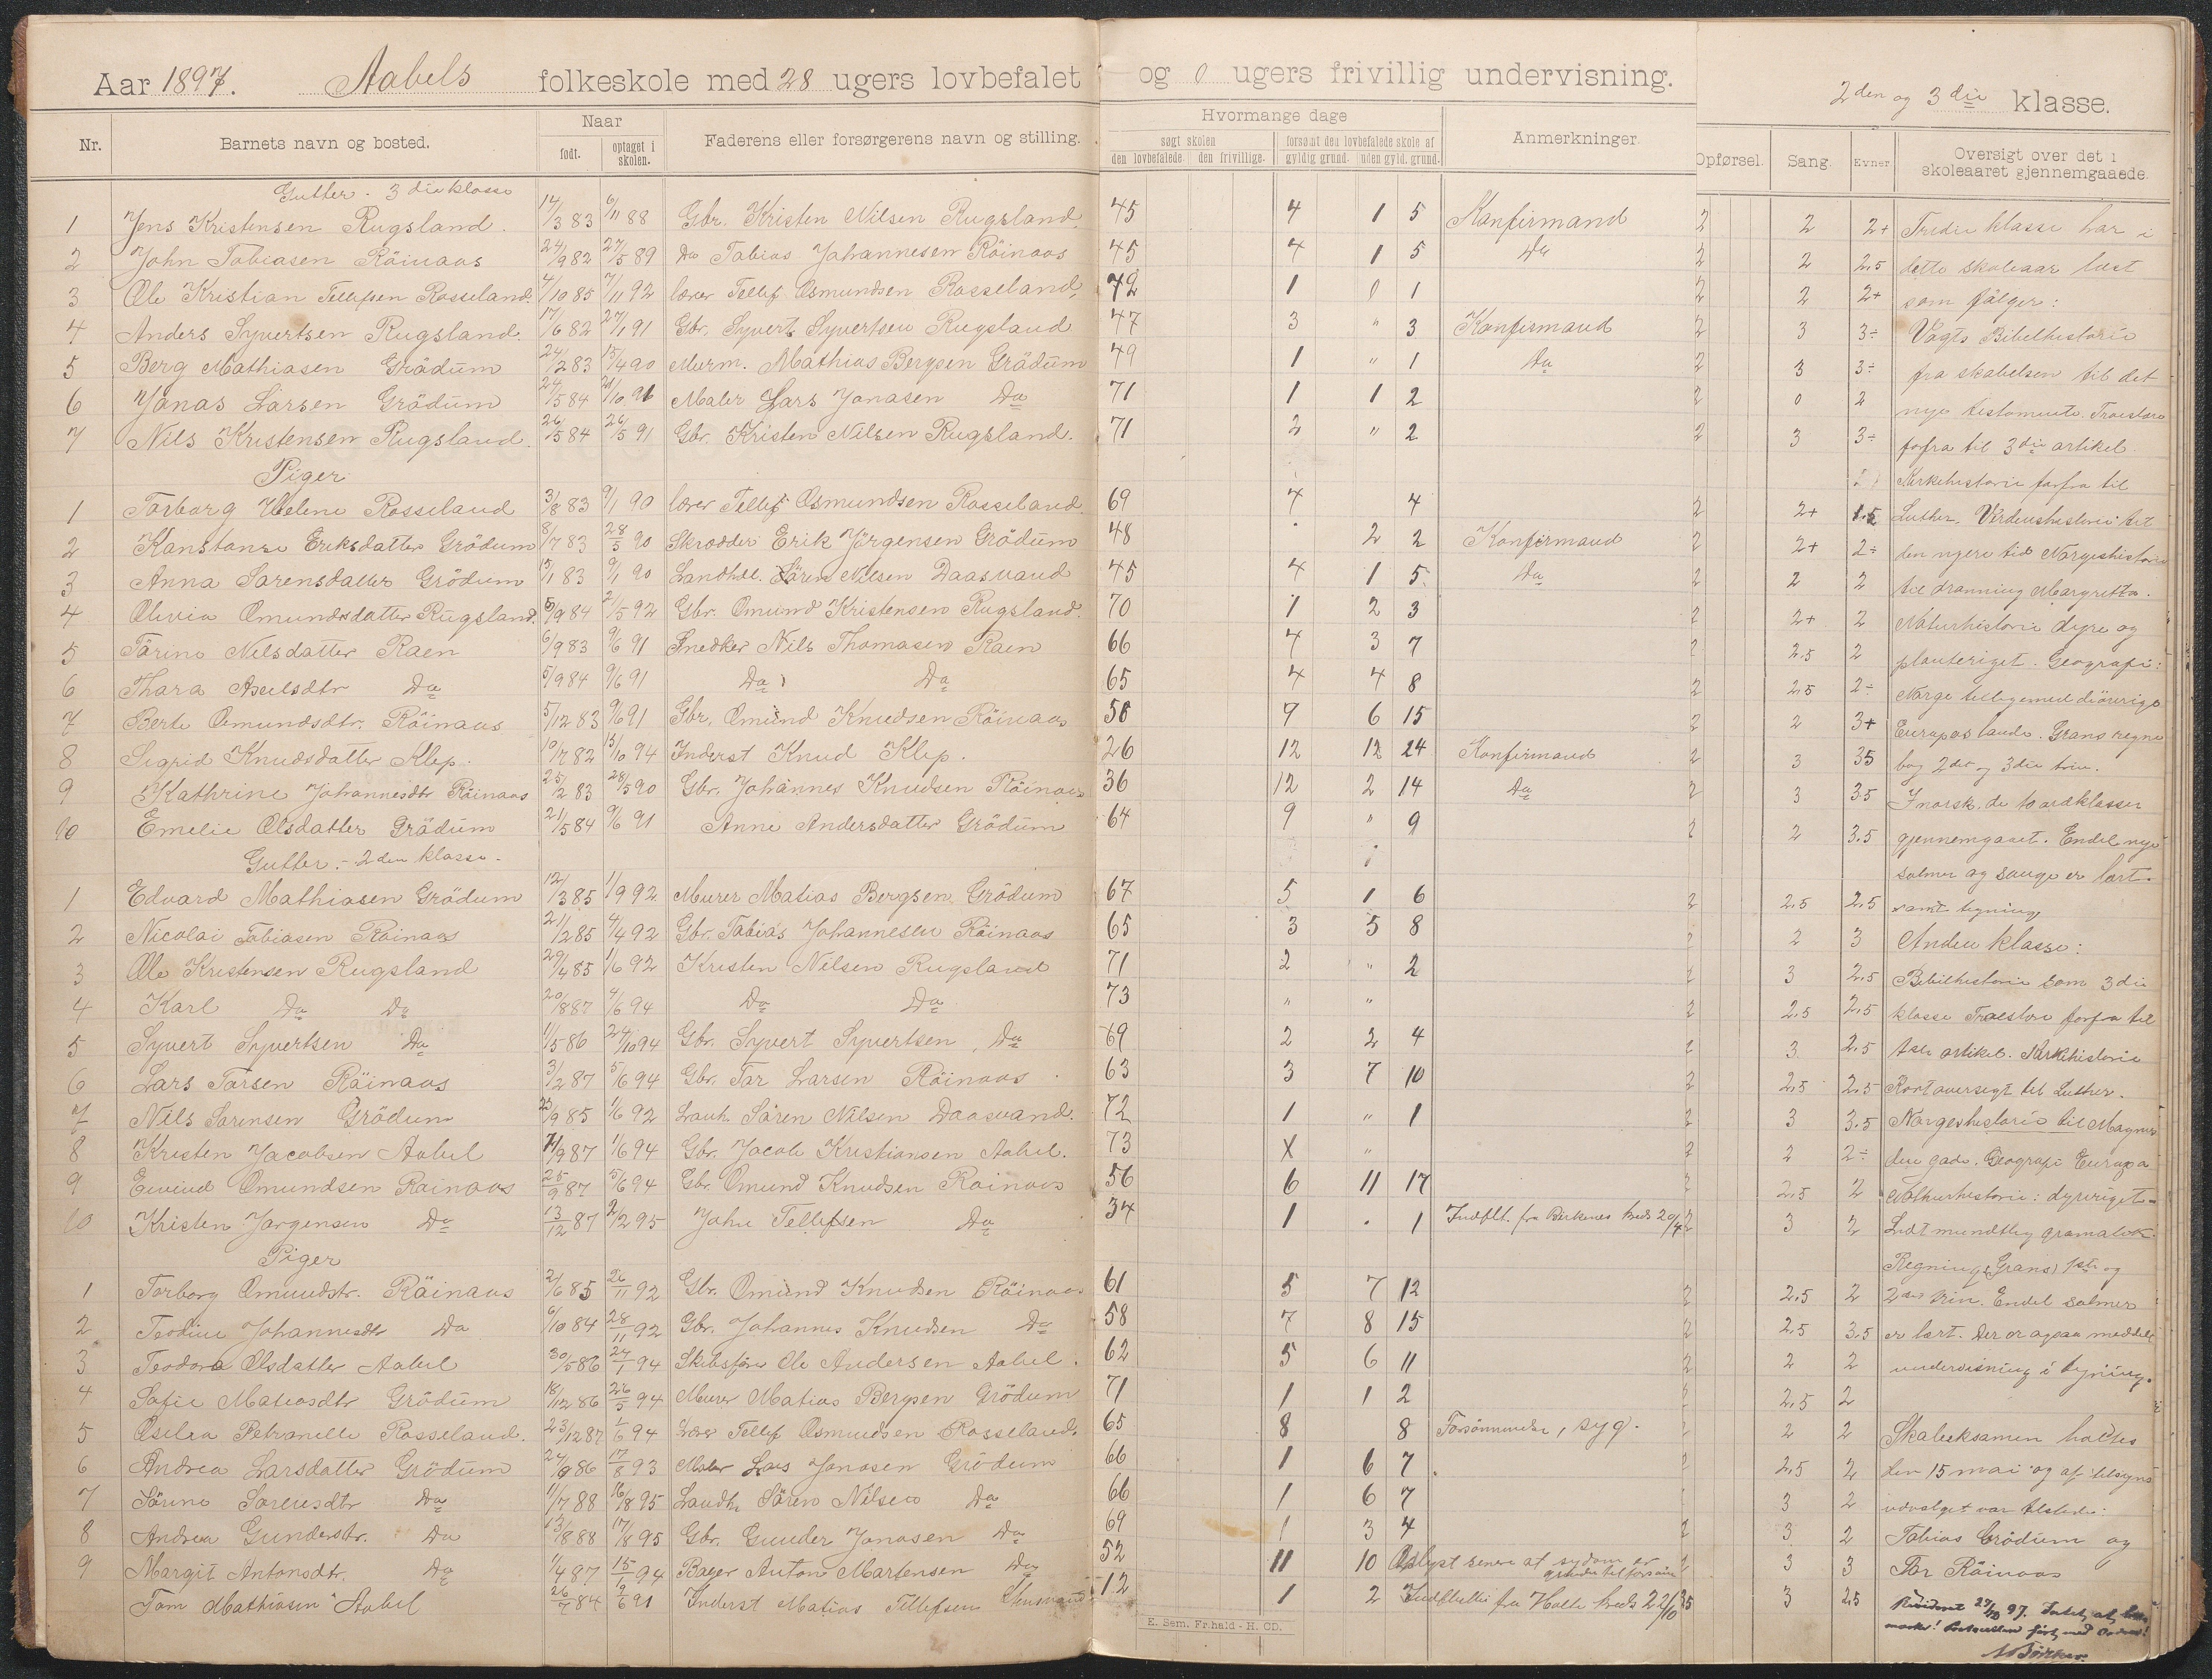 Aar 1897. Aabels folkeskole med 28 ugers lovbefalet og 0 ugers frivillig undervisning. 2den og 3die klasse.
Nr. Barnets navn og bosted. Naar født. optaget i skolen. Faderens eller forsørgerens navn og stilling. Hvormange dage søgt skolen den lovbefalede. den frivillige. forsømt den lovbefalede skole af gyldig grund. uden gyld. grund. Anmerkninger. Opførsel. Sang. Evner. Oversigt over det i skoleaaret gjennemgaaede.
Gutter. 3die klasse
1 Jens Kristensen Rugsland. 14/3 83 6/11 88 Gbr. Kristen Nilsen Rugsland. 45 4 1 5 Konfirmand 2 2 2+ Tredie klasse har i
2 John Tobiasen Röinaas 24/9 82 27/5 89 Do Tobias Johannesen Röinaas 45 4 1 5 Do 2 2 2,5 dette skoleaar læst
3 Ole Kristian Tellefsen Rosseland. 4/10 85 7/11 92 lærer Tellef Osmundsen Rosseland, 72 1 0 1 2 2 2+ som fölger:
4 Anders Syvertsen Rugsland. 17/6 82 27/1 91 Gbr. Syvert Syvertsen Rugsland 47 3 " 3 Konfirmand 2 3 3÷ Vogts Bibelhistorie
5 Berg Mathiasen Grödum 24/2 83 15/4 90 Murm. Mathias Bergsen Grödum 49 1 " 1 Do 2 3 3÷ fra skabelsen til det
6 Jonas Larsen Grödum 24/5 84 21/10 91 Maler Lars Jonasen Do 71 1 1 2 2 0 2 nye testamente. Troeslære
7 Nils Kristensen Rugsland. 26/5 84 26/5 91 Gbr. Kristen Nilsen Rugsland. 71 2 " 2 2 3 3÷ forfra til 3die artikel.
Piger Kirkehistorie forfra til
1 Torborg Helene Rosseland 3/8 83 9/1 90 lærer Tellef Osmundsen Rosseland. 69 4 4 2 2+ 1.5 Luther. Verdenshistorie til
2 Konstanse Eriksdatter Grödum 8/7 83 28/5 90 Skrædder Erik Jörgensen Grödum 48 . 2 2 Konfirmand 2 2+ 2÷ den nyere tid Norgeshistorie
3 Anna Sorensdatter Grödum 15/1 83 9/1 90 Landhdl. Sören Nilsen Daasvand 45 4 1 5. Do 2 2 2 til dronning Margretta.
4 Olivia Omundsdatter Rugsland. 5/9 84 2/5 92 Gbr. Omund Kristensen Rugsland. 70 1 2 3 2 2+ 2 Naturhistorie dyre og
5 Torine Nilsdatter Raen 6/9 83 9/6 91 Snedker Nils Thomasen Raen 66 4 3 7 2 2.5 2 planteriget. Geografi:
6 Thora Akselsdtr Do 5/9 84 9/6 91 Do Do 65 4 4 8 2 2,5 2÷ Norge tilligemed de övrige
7 Berte Omundsdtr. Röinaas 5/12 83 9/6 91 Gbr. Omund Knudsen Röinaas 58 9 6 15 2 2 3+ Europas lande. Grans regne
8 Sigrid Knudsdatter Klep. 10/7 82 15/10 94 Inderst Knud Klep. 26 12 12 24 Konfirmand 2 3 35 bog 2det og 3die trin.
9 Kathrine Johannesdtr Röinaas 25/2 83 28/5 90 Gbr. Johannes Knudsen Röinaas 36 12 2 14 Do 2 3 3.5 I norsk, de 10 ordklasser
10 Emelie Olsdatter Grödum 21/5 84 9/6 91 Anne Andersdatter Grödum 64 9 " 9 2 2 3.5 gjennemgaaet. Endel nye
Gutter. - 2den klasse. salmer og sange er lært.
1 Edvard Mathiasen Grödum 12/3 85 1/9 92 Murer Matias Bergsen Grödum 67 5 1 6 2 2.5 2.5 samt tegning
2 Nicolai Tobiasen Röinaas 21/12 85 4/4 92 Gbr. Tobias Johannesen Röinaas 65 3 5 8 2 2 3 Anden klasse:
3 Ole Kristensen Rugsland 29/4 85 1/6 92 Kristen Nilsen Rugsland 71 2 " 2 2 3 2.5 Bibelhistorie som 3die
4 Karl Do Do 20/8 87 4/6 94 Do Do 73 " " 2 2.5 2.5 klasse Troeslære forfra til
5 Syvert Syvertsen Do 1/5 86 24/10 94 Gbr. Syvert Syvertsen, Do 69 2 2 4 2 3 2.5 1ste artikel. Kirkehistorie
6 Lars Torsen Röinaas 3/2 87 5/6 94 Gbr. Tor Larsen Röinaas 63 3 7 10 2 2.5 2.5 Kort oversigt til Luther.
7 Nils Sorensen Grödum 25/9 85 1/6 92 Lanh. Sören Nilsen Daasvand. 72 1 " 1 2 3 3.5 Norgeshistorie til Magnus
8 Kristen Jacobsen Aabel 11/9 87 1/6 94 Gbr. Jacob Kristiansen Aabel. 73 X " 2 2 2÷ den gode. Geografi Europa
9 Eivind Omundsen Roinaas 25/9 87 5/6 94 Gbr. Omund Knudsen Röinaas 56 6 11 17 2 2.5 2 Nathurhistorie: dyreriget.
10 Kristen Jorgensen Do 13/12 87 2/12 95 John Tellefsen Do 34 1 . 1 Indflt. fra Birkenes kreds 20/4 2 3 2 Lidt mundtlig gramatik
Piger Regning (Grans) 1ste og
1 Torborg Omundsdtr. Röinaas 2/6 85 26/11 92 Gbr. Omund Knudsen Röinaas 61 5 7 12 2 2.5 2 2det trin. Endel salmer
2 Teodine Johannesdtr Do 6/10 84 28/11 92 Gbr. Johannes Knudsen Do 58 7 8 15 2 2.5 3.5 er lært. Der er ogsaa meddelt
3 Teodora Olsdatter Aabel 30/5 86 24/1 94 Skibsförer Ole Andersen Aabel. 62 5 6 11 2 2 2 undervisning i tegning.
4 Sofie Matiasdtr Grödum 18/12 86 26/5 94 Murer Matias Bergsen Grödum 71 1 1 2 2 2,5 2
5 Oselra Petranelle Rosseland. 23/12 87 1/6 94 Lærer Tellef Osmundsen Rosseland. 65 8 8 Forsömmelse, syg. 2 2 2 Skoleeksamen holdtes
6 Andrea Larsdatter Grödum 24/9 86 17/8 93 Maler Lars Jonasen Grödum 66 1 6 7 2 2,5 2 den 15 mai og af tilsyns
7 Sörine Sorensdtr Do 11/7 88 16/8 95 Landh. Sören Nilsen Do 66 1 6 7 3 2 udvalget var tilstede:
8 Andrea Gundersdtr. Do 13/8 88 17/8 95 Gbr. Gunder Jonasen Do 69 1 3 4 2 3 2 Tobias Grödum og
9 Margit Antonsdtr. Do 1/4 87 15/1 94 Bager Anton Martensen Do 52 11 10 Oplyst senere at sygdom er grunden til forsöm 2 3 3 Tor Röinaas
Tom Mathiasen Aabel 26/7 84 9/6 91 Inderst Matias Tellefsen 12 1 2 Indflyttet fra Holte kreds 22/10 95 3 2.5 Revideret 27/10 97.
E. Sem. Fr.hald - H. CD.